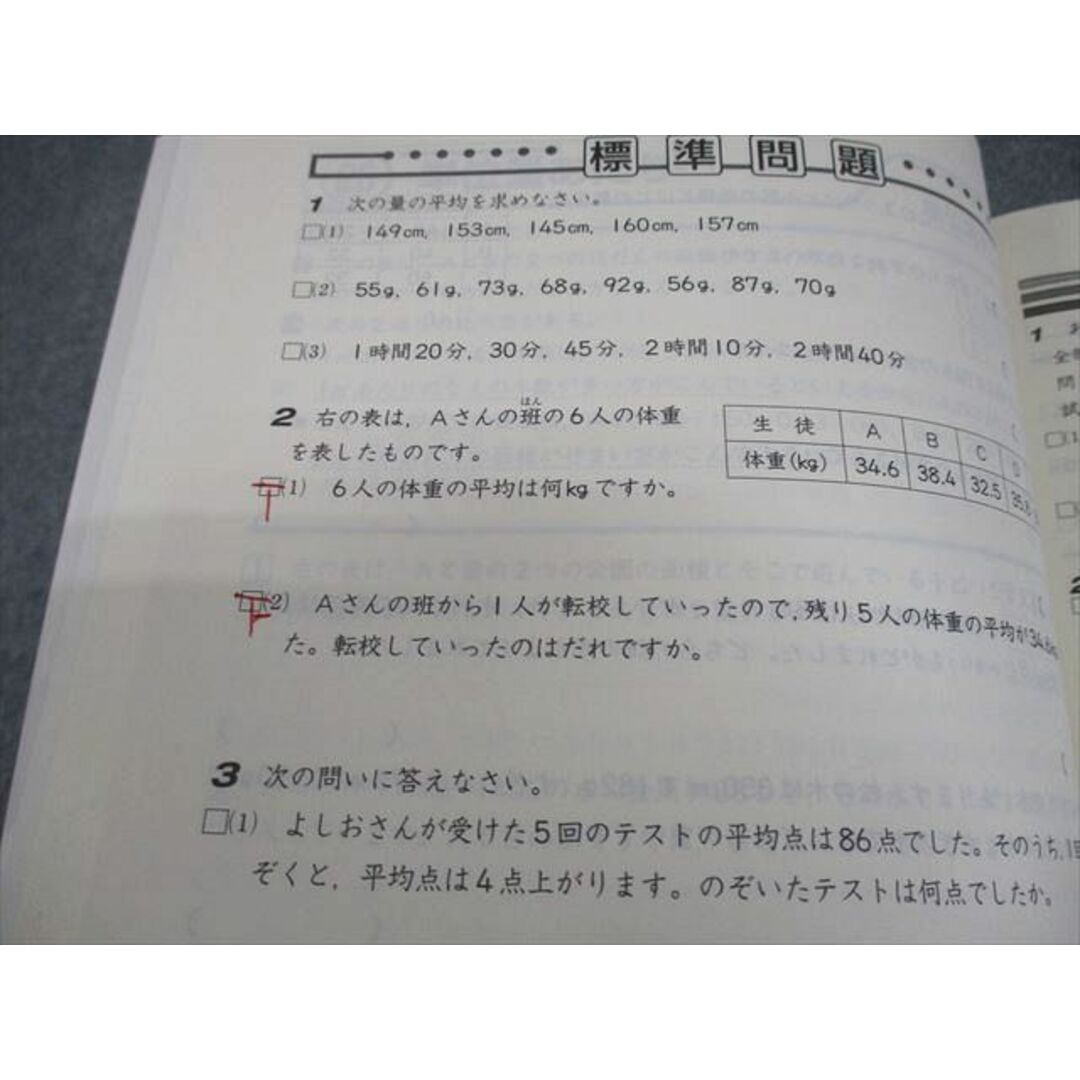 標準問題
1 次の量の平均を求めなさい。
□(1) 149cm, 153cm, 145cm, 160cm, 157cm
□(2) 55g, 61g, 73g, 68g, 92g, 56g, 87g, 70g
□(3) 1時間20分, 30分, 45分, 2時間10分, 2時間40分
はん
2 右の表は, Aさんの班の6人の体重
を表したものです。
生徒 A B C
体重(kg) 34.6 38.4 32.5 35.8
□(1) 6人の体重の平均は何kgですか。
□(2) Aさんの班から1人が転校していったので, 残り5人の体重の平均が
た。転校していったのはだれですか。
3 次の問いに答えなさい。
□(1) よしおさんが受けた5回のテストの平均点は86点でした。そのうち, 1
ぞくと, 平均点は4点上がります。のぞいたテストは何点でしたか。
1
問
試
□(1
2